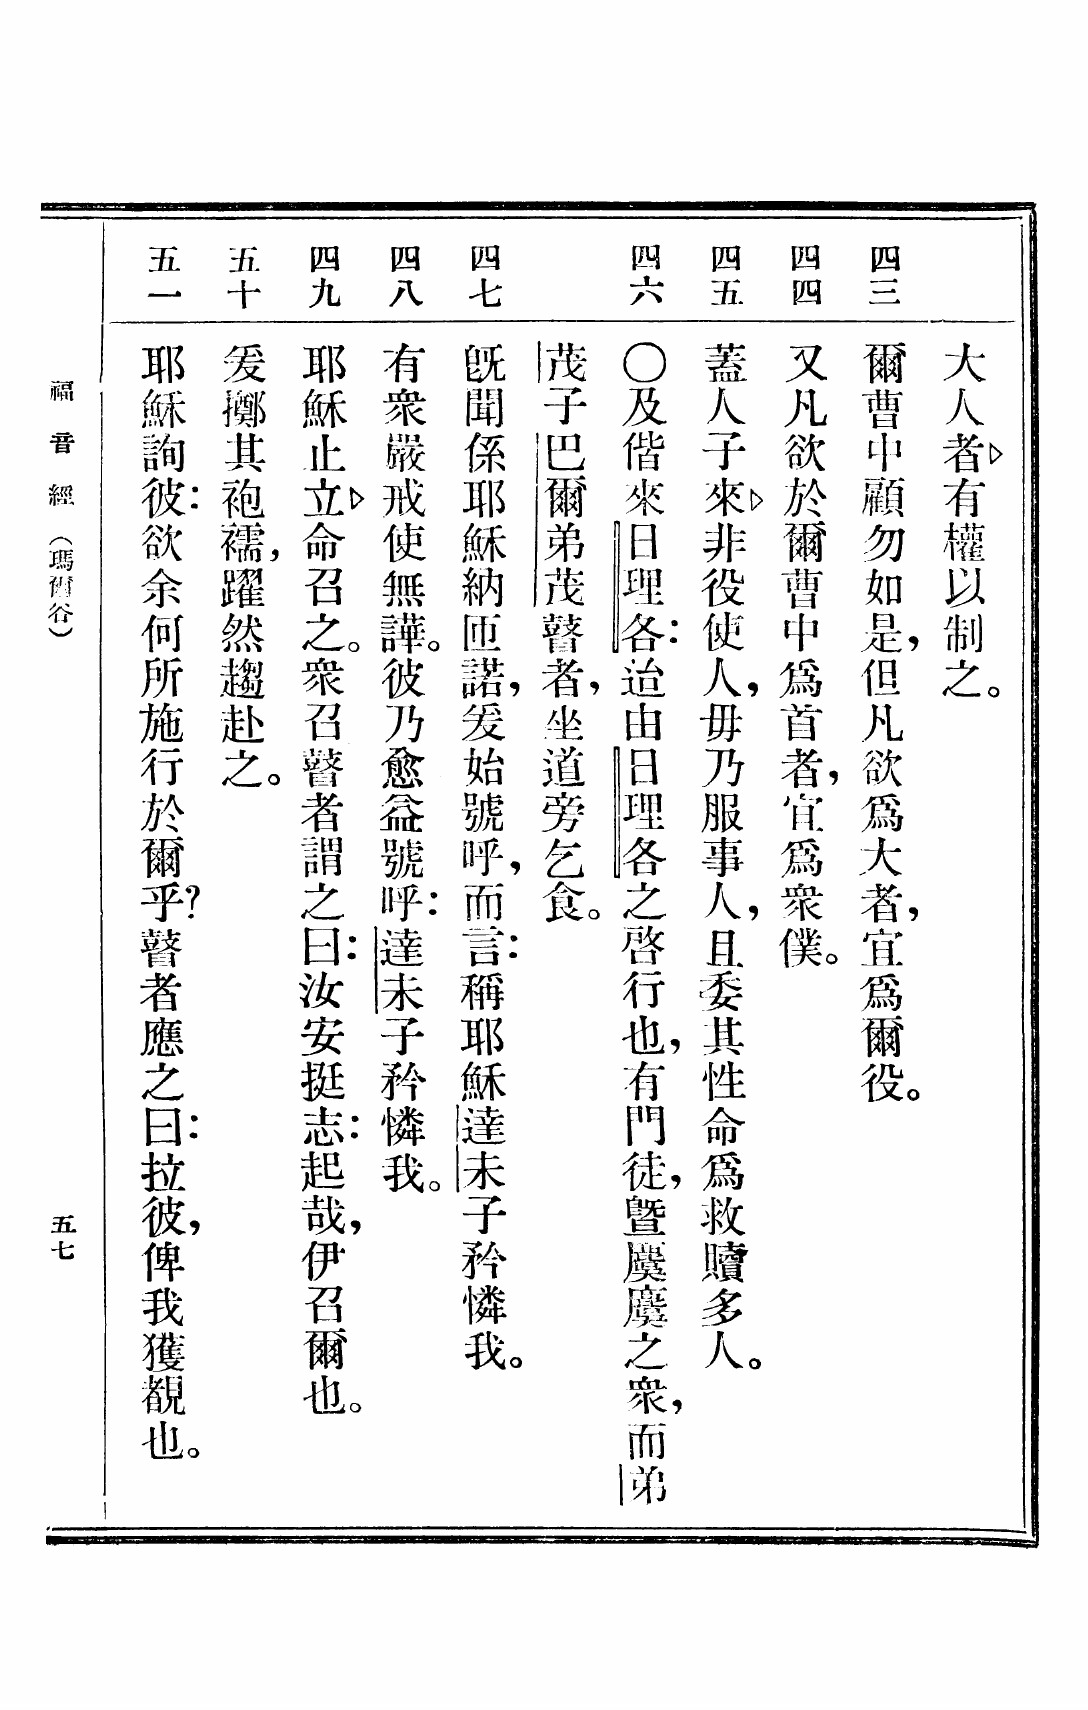 大人者▷有權以制之。
四三 爾曹中顧勿如是，但凡欲爲大者，宜爲爾役。
四四 又凡欲於爾曹中爲首者，宜爲衆僕。
四五 蓋人子來▷非役使人，毋乃服事人，且委其性命爲救贖多人。
四六 〇及偕來日理各：迨由日理各之啓行也，有門徒，曁麌麌之衆，而弟
茂子巴爾弟茂瞽者，坐道旁乞食。
四七 旣聞係耶穌納匝諾，爰始號呼，而言：稱耶穌達未子矜憐我。
四八 有衆嚴戒使無譁。彼乃愈益號呼：達未子矜憐我。
四九 耶穌止立▷命召之。衆召瞽者謂之曰：汝安挺志：起哉，伊召爾也。
五十 爰擲其袍襦，躍然趨赴之。
五一 耶穌詢彼：欲余何所施行於爾乎？瞽者應之曰：拉彼，俾我獲覩也。
福音經（瑪爾谷） 五七